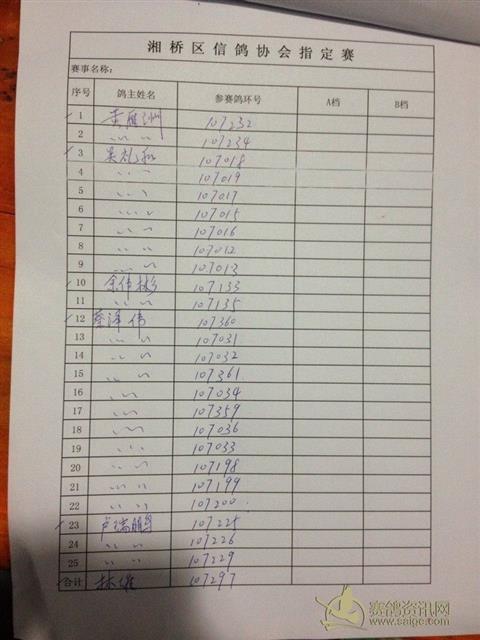 湘桥区信鸽协会指定赛
赛事名称:
序号 鸽主姓名 参赛鸽环号 A档 B档
1 黄雁洲 107232
2 〃 〃 107234
3 吴礼和 107018
4 〃 〃 107019
5 〃 〃 107017
6 〃 〃 107015
7 〃 〃 107016
8 〃 〃 107012
9 〃 〃 107013
10 余伟彬 107133
11 〃 〃 107135
12 蔡泽伟 107360
13 〃 〃 107031
14 〃 〃 107032
15 〃 〃 107361
16 〃 〃 107034
17 〃 〃 107359
18 〃 〃 107036
19 〃 〃 107033
20 〃 〃 107198
21 〃 〃 107199
22 〃 〃 107200
23 卢瑞鹏 107225
24 〃 〃 107226
25 〃 〃 107229
合计 林雄 107297
赛鸽资讯网
www.saige.com